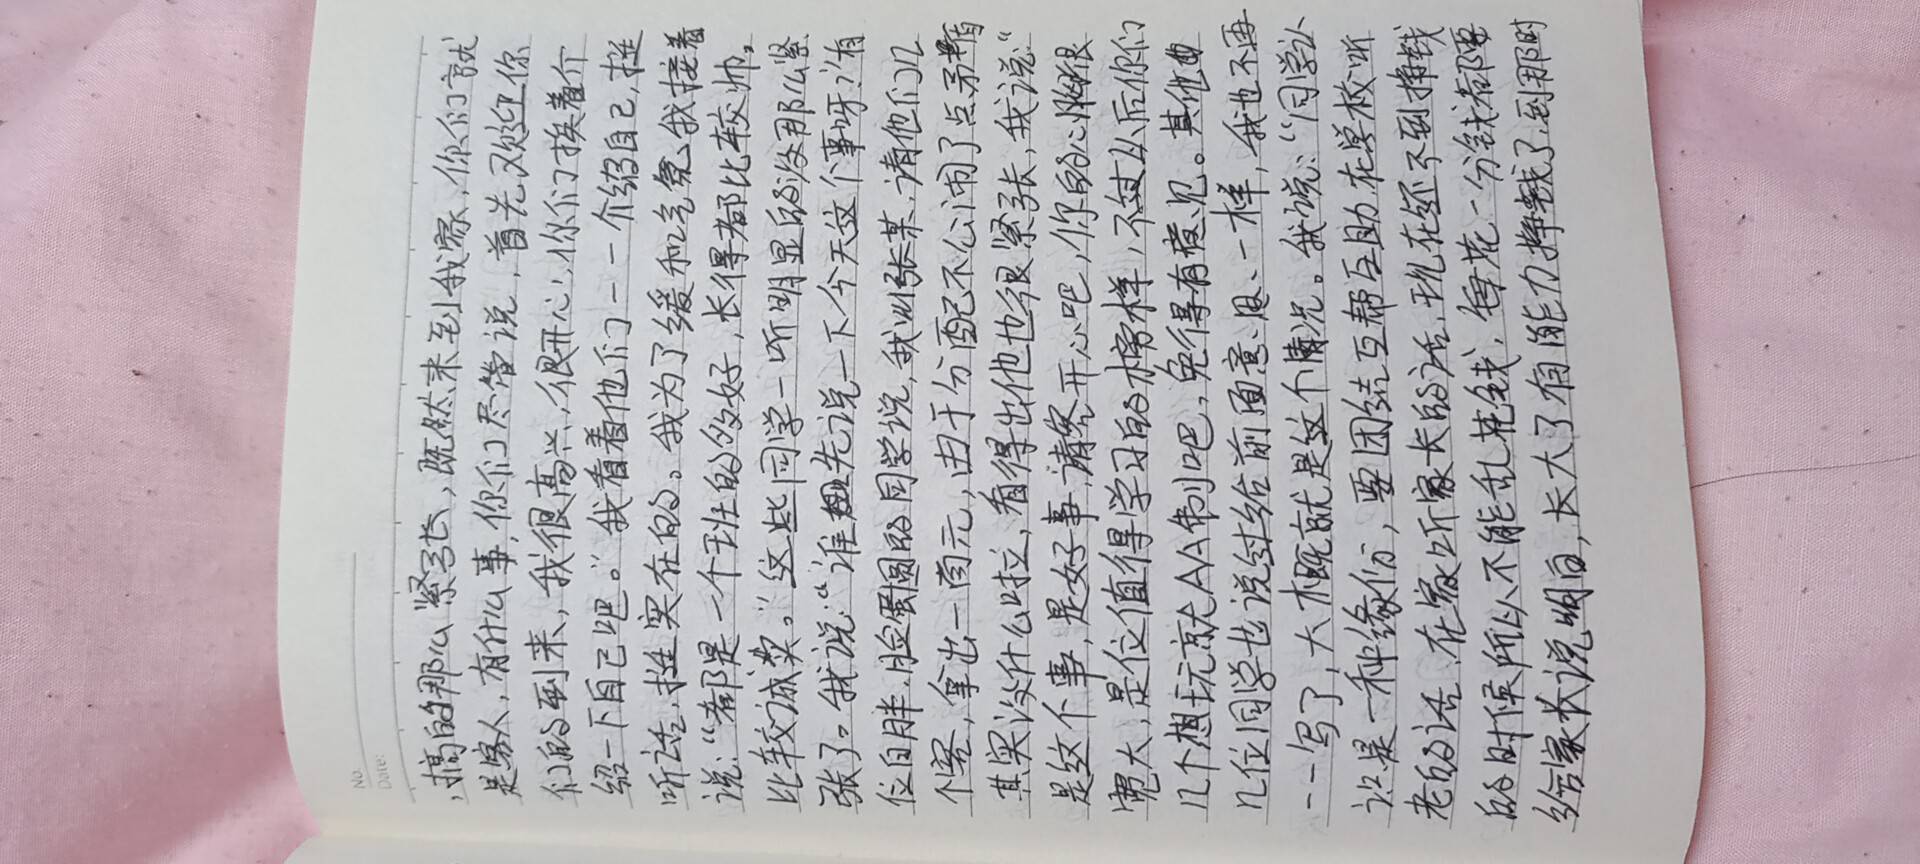 No.
Date:
,搞的那么紧张,既然来到我家,你们就
是客人,有什么事,你们尽管说,首先欢迎你
们的到来,我很高兴,很开心,你们挨着介
绍一下自己吧。"我看着他们一一介绍自己,挺
听话,挺实在的。我为了缓和气氛,我接着
说:"都是一个班的多好,长得都比较帅,
比较诚实。"这些同学一听明显的没那么紧
张了。我说:"谁先说一下今天这个事呀?"有
位白胖,脸蛋圆的同学说,我叫张某,请他们几
个客,拿出一百元,由于分配不公闹了点矛盾
其实没什么啦,看得出他也很紧张,我说:"
是这个事,是好事,请客开心吧,你的心胸很
宽大,是位值得学习的榜样,不过以后你们
几个想玩就AA制吧,免得有意见。其他由
几位同学也说过给前面意思一样,我也不再
一一写了,大概就是这个情况。我说:"同学认
识是一种缘份,要团结互帮互助在学校听
老的话,在家听家长的话,现在还不到挣钱
的时候所以不能乱花钱,每花一分钱都要
给家长说明白,长大了有能力挣钱了,到那时